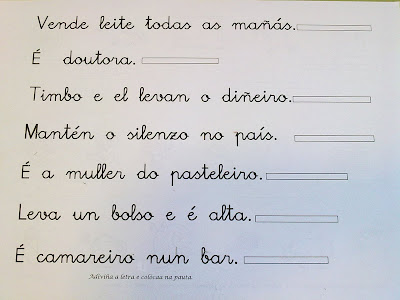 Vende leite todas as mañás.
É doutora.
Timbo e el levan o diñeiro.
Mantén o silenzo no país.
É a muller do pasteleiro.
Leva un bolso e é alta.
É camareiro nun bar.
Adiviña a letra e colócaa na pauta